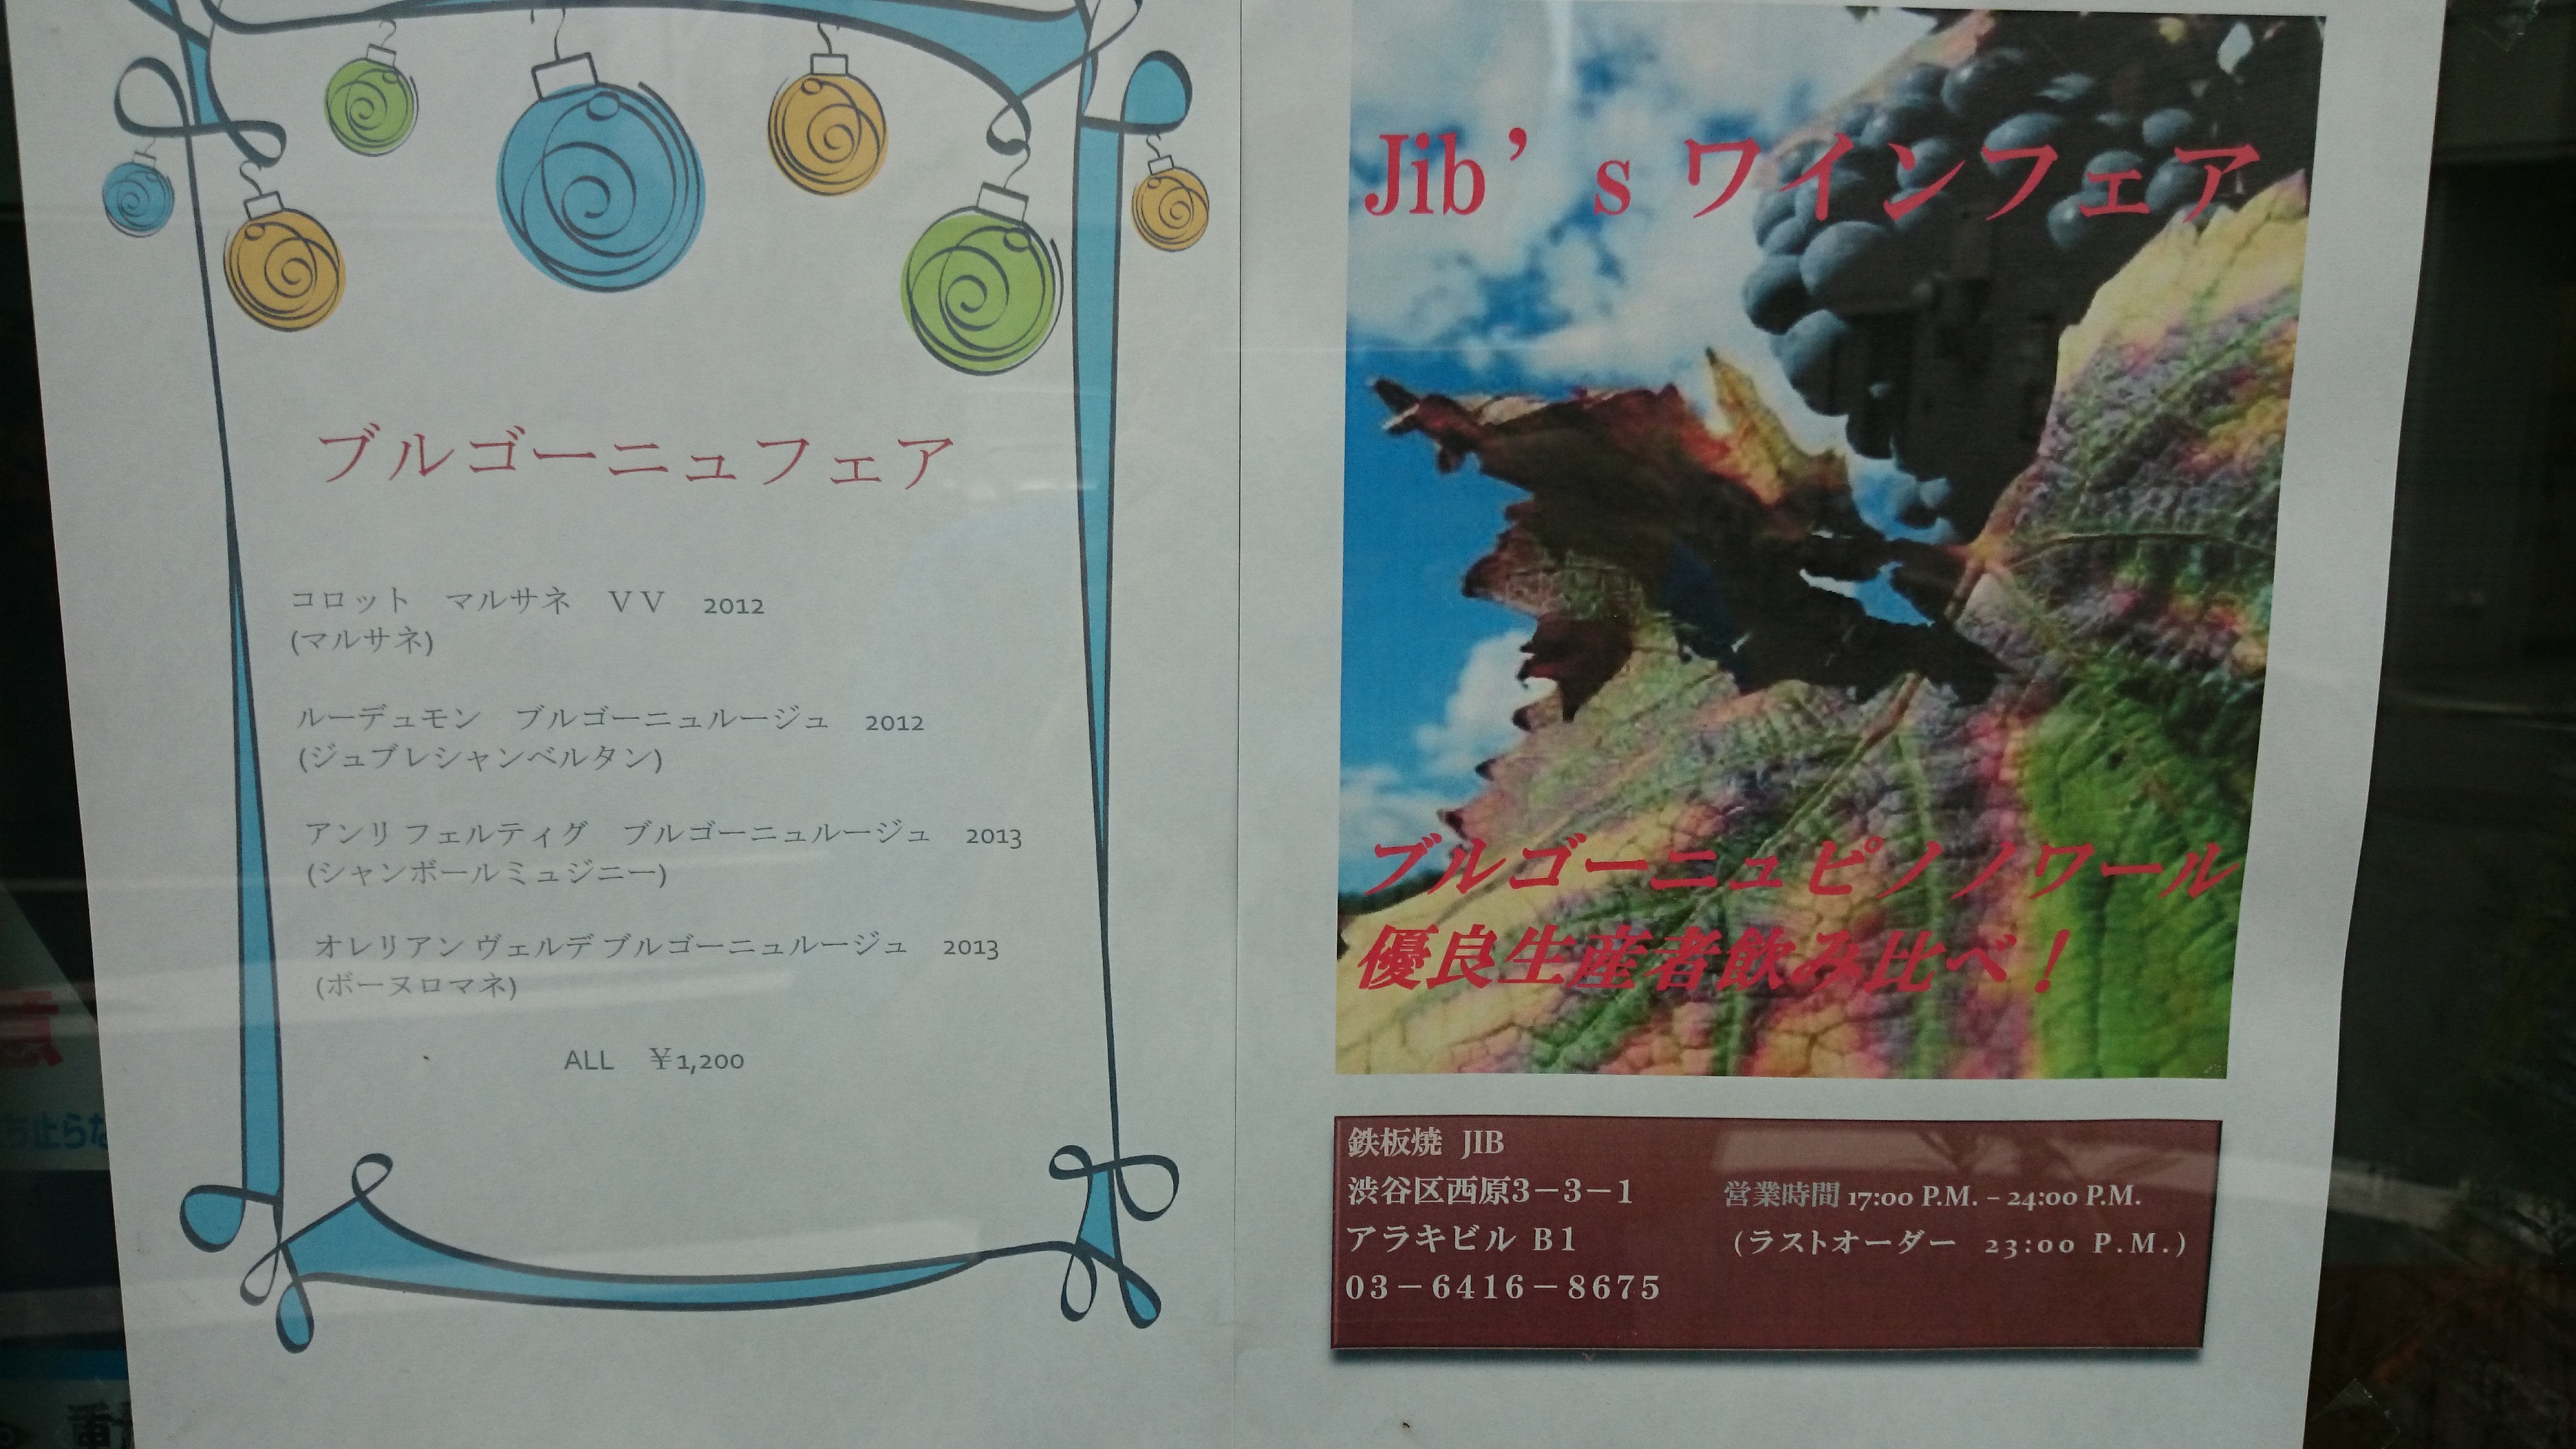 ブルゴーニュフェア
コロット　マルサネ　ＶＶ　2012
(マルサネ)
ルーデュモン　ブルゴーニュルージュ　2012
(ジュブレシャンベルタン)
アンリ フェルティグ　ブルゴーニュルージュ　2013
(シャンボールミュジニー)
オレリアン ヴェルデ ブルゴーニュルージュ　2013
(ボーヌロマネ)
ALL　￥1,200
Jib’s ワインフェア
ブルゴーニュ ピノノワール
優良生産者飲み比べ！
鉄板焼 JIB
渋谷区西原3－3－1
アラキビル B1
03－6416－8675
営業時間 17:00 P.M. – 24:00 P.M.
(ラストオーダー　23:00 P.M.)
ち止らな